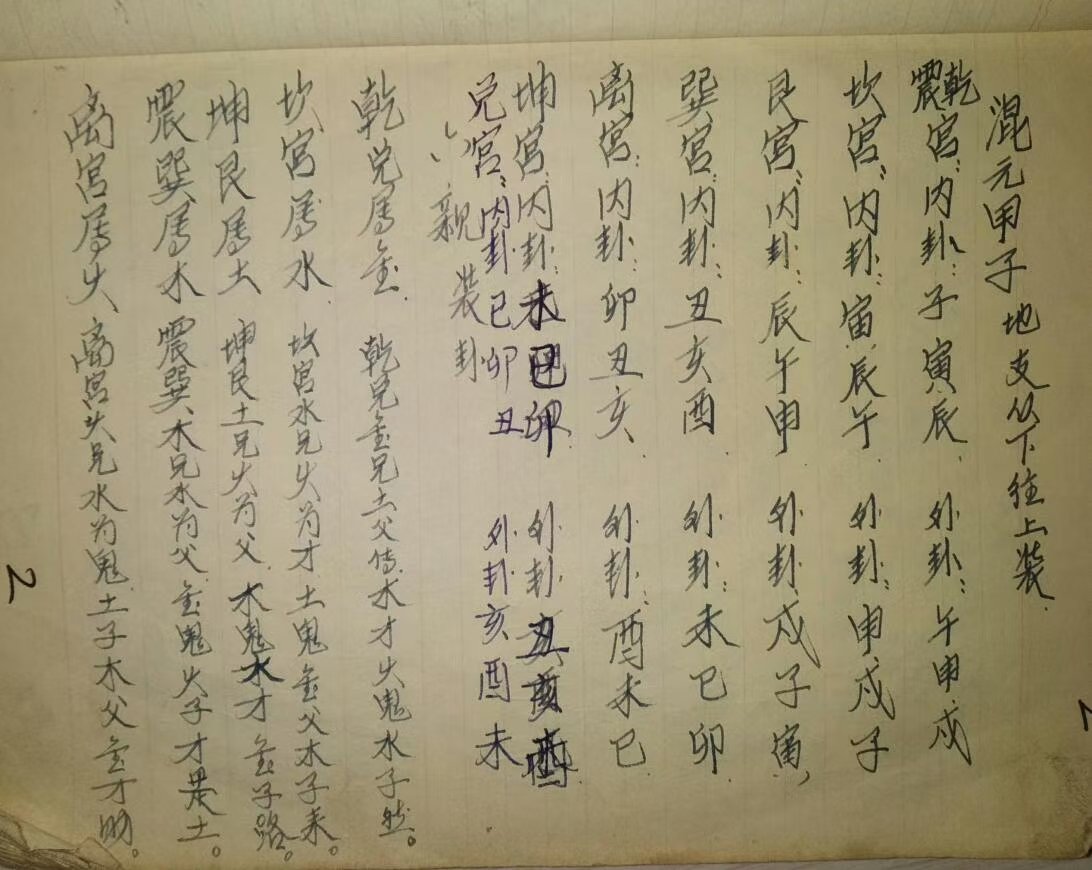 混元甲子 地支从下往上装.
乾震宫:内卦:子寅辰. 外卦:午申戌
坎宫:内卦:寅辰午. 外卦:申戌子
艮宫:内卦:辰午申 外卦:戌子寅,
巽宫:内卦:丑亥酉 外卦:未巳卯.
离宫:内卦:卯丑亥. 外卦:酉未巳.
坤宫:内卦:未巳卯. 外卦丑亥酉
兑宫:内卦巳卯丑 外卦亥酉未
六亲装卦
乾兑属金. 乾兑金兄土父传木才火鬼水子然。
坎宫属水 坎宫水兄火为才土鬼金父木子来。
坤艮属土 坤艮土兄火为父.木鬼水才金子路。
震巽属木 震巽木兄水为父.金鬼火子才是土。
离宫属火 离宫火兄水为鬼土子木父金才助。
2